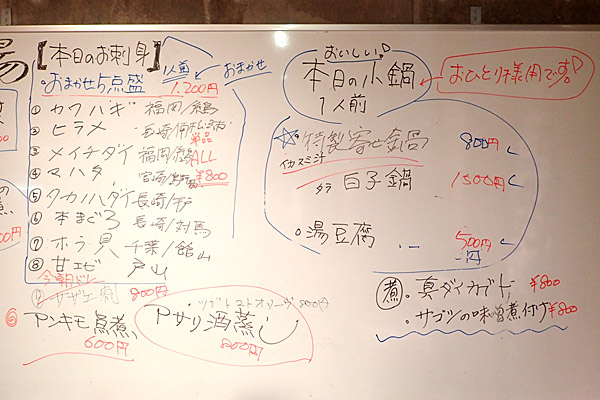 【本日のお刺身】
1人前
おまかせ5点盛 1,200円 おまかせ
① カワハギ 福岡/
② ヒラメ 長崎/
単品
③ メイチダイ 福岡/ ALL
④ マハタ 宮崎/ ¥800
⑤ タカハダイ 長崎/
⑥ 本まぐろ 長崎/対馬
⑦ ホラ貝 千葉/館山
⑧ 甘エビ 戸山
今朝ドレ
サザエ刺 800円
アンキモ煮 600円
800円
アサリ酒蒸し
800円
おいしい♡
本日の小鍋
1人前
おひとり様用です。
☆特製寄せ鍋 800円
カスミ汁
タラ 白子鍋 1500円
湯豆腐 500円
煮 ・真ダイカブト ¥800
・サゴシの味噌煮付け ¥800